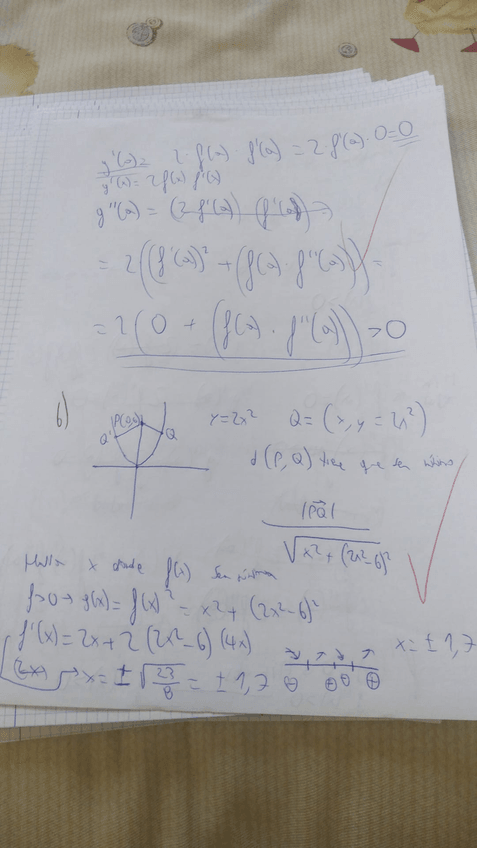 g'(a) = 2·f(a)·f'(a) = 2·f(a)·0=0
g'(a) = 2f(a) f'(a)
g''(a) = (2·f'(a))·(f'(a)) →
= 2((f'(a))² + (f(a)·f''(a))) =
= 2(0 + (f(a)·f''(a))) > 0
b)
P(0,6)
Q'
Q
y=2x² Q = (x, y = 2x²)
d(P,Q) tiene que ser mínimo
|PQ|
√x² + (2x²-6)²
Hallar x donde f(x) sea mínima
f>0 → g(x) = f(x)² = x² + (2x²-6)²
f'(x) = 2x + 2(2x²-6)(4x)
x = ± 1,7
→ x = ± √23/8 = ± 1,7
⊖ ⊕ ⊖ ⊕